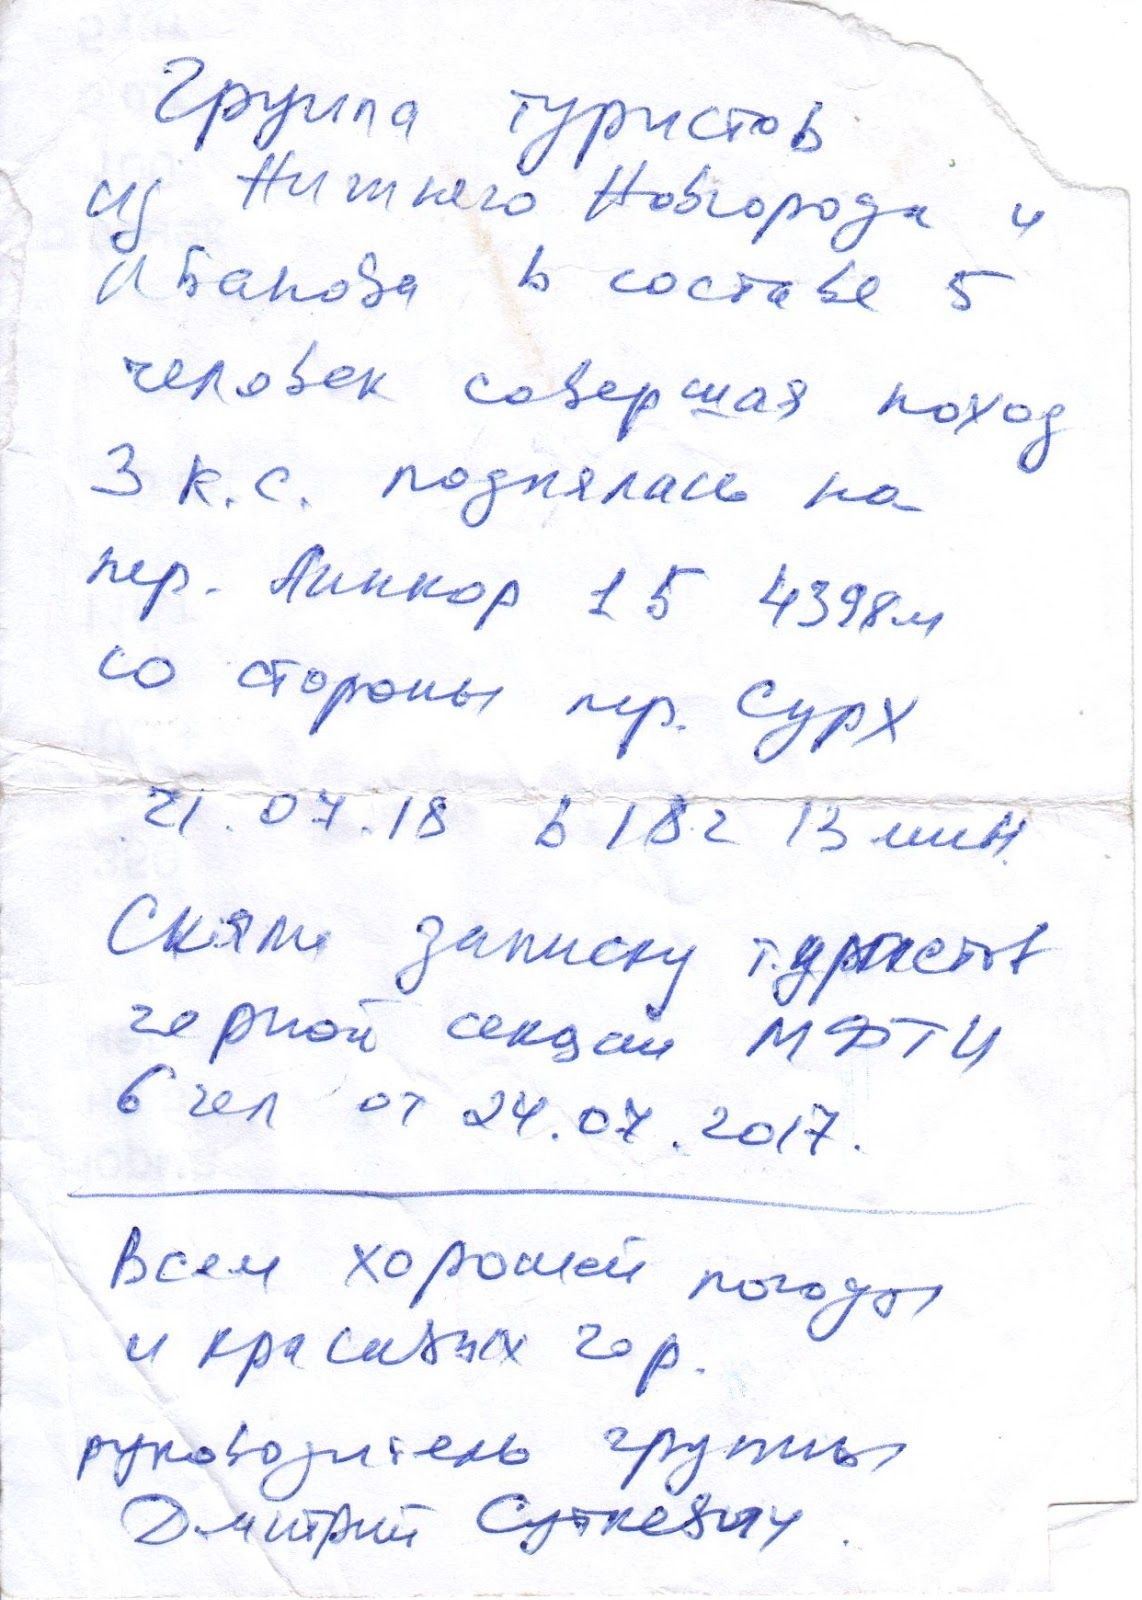 Группа туристов
из Нижнего Новгорода и
Иванова в составе 5
человек совершая поход
3 к.с. поднялась на
пер. Линкор 1Б 4398м
со стороны пер. Сурх
21.07.18 в 18г 13 мин.
Сняли записку туристов
горной секции МФТИ
6 чел от 24.07.2017.
Всем хорошей погоды
и красивых гор.
руководитель группы
Дмитрий Суткевич.